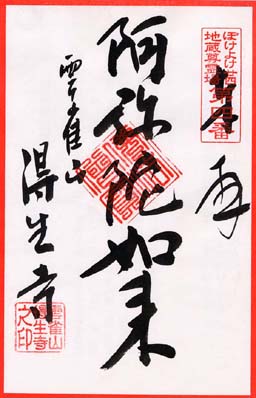 ぼけよけ
地蔵尊霊場
第四番
奉拝
阿弥陀如来
雲雀山
得生寺
雲雀山
得生寺
之印